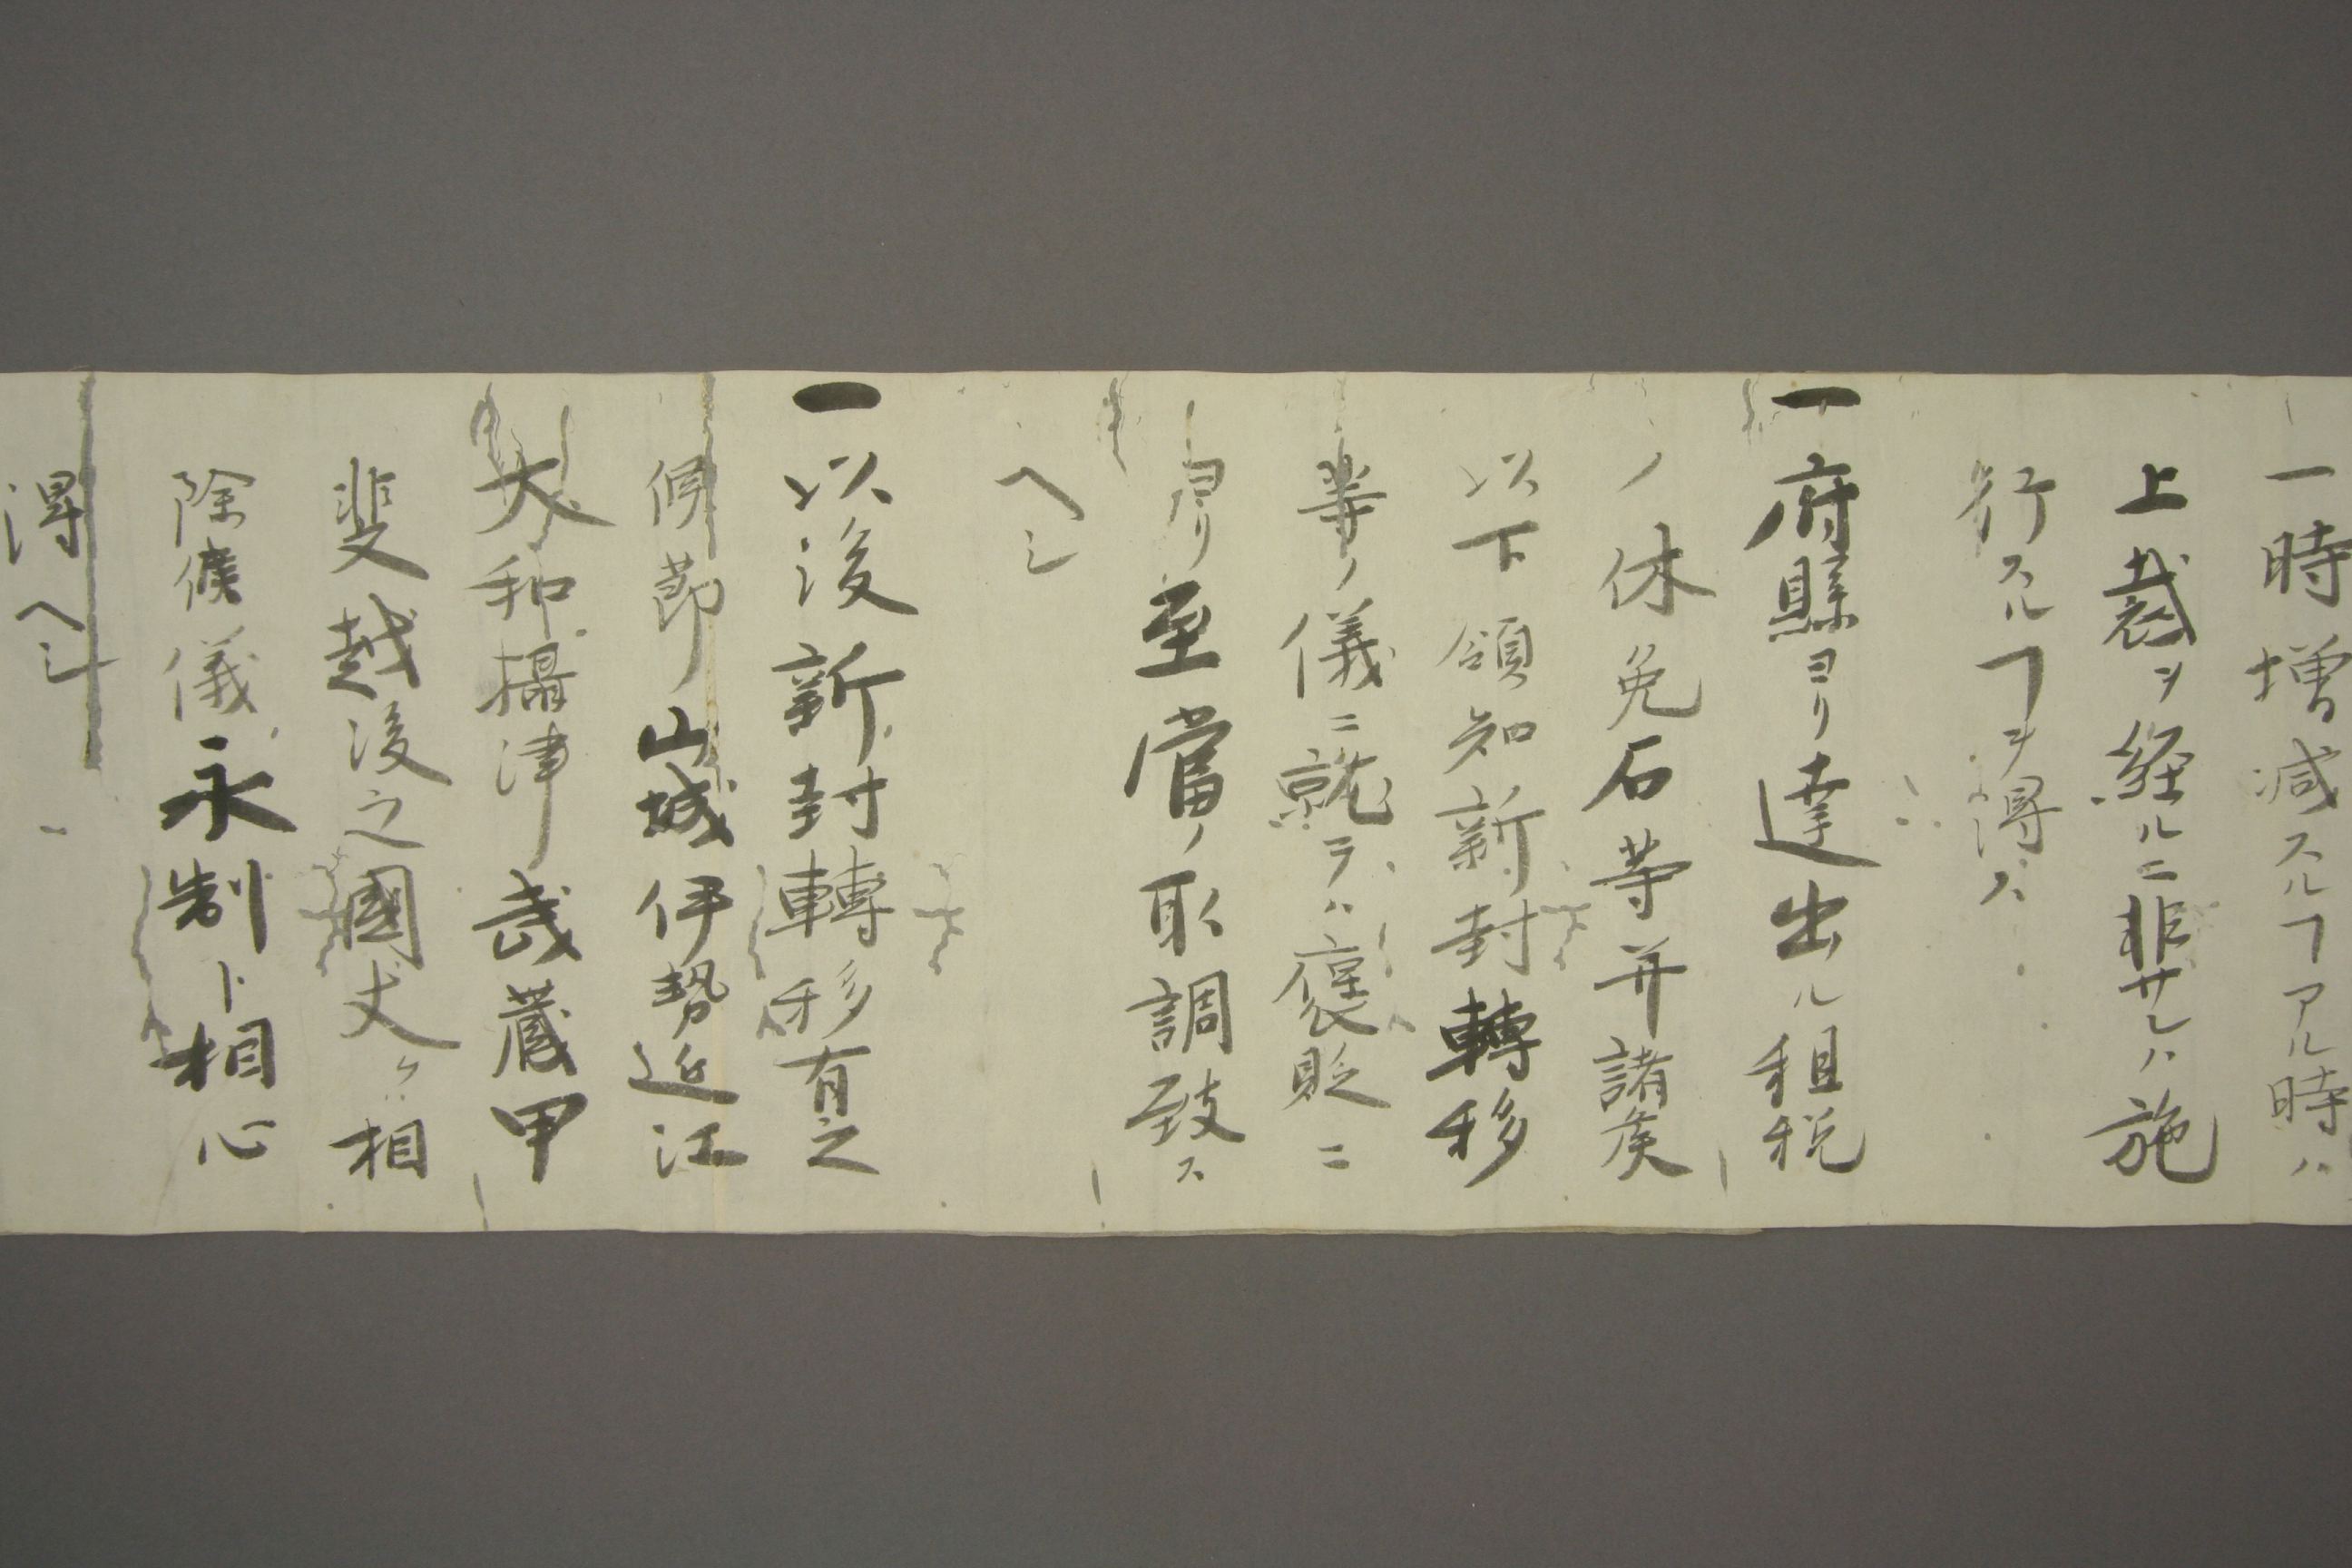 一時増減スルヿアル時ハ
上裁ヲ経ルニ非サレハ施
行スルヿヲ得ス
一府縣ヨリ達出ル租税
ノ休免石等并諸矦
以下領知新封轉移
等ノ儀ニ就テハ褒貶ニ
至當ノ取調致ス
ヘシ
一以後新封轉移有之
候節山城伊勢近江
大和攝津武蔵甲
斐越後之國丈ケ相
除候儀永制ト相心
得ヘシ